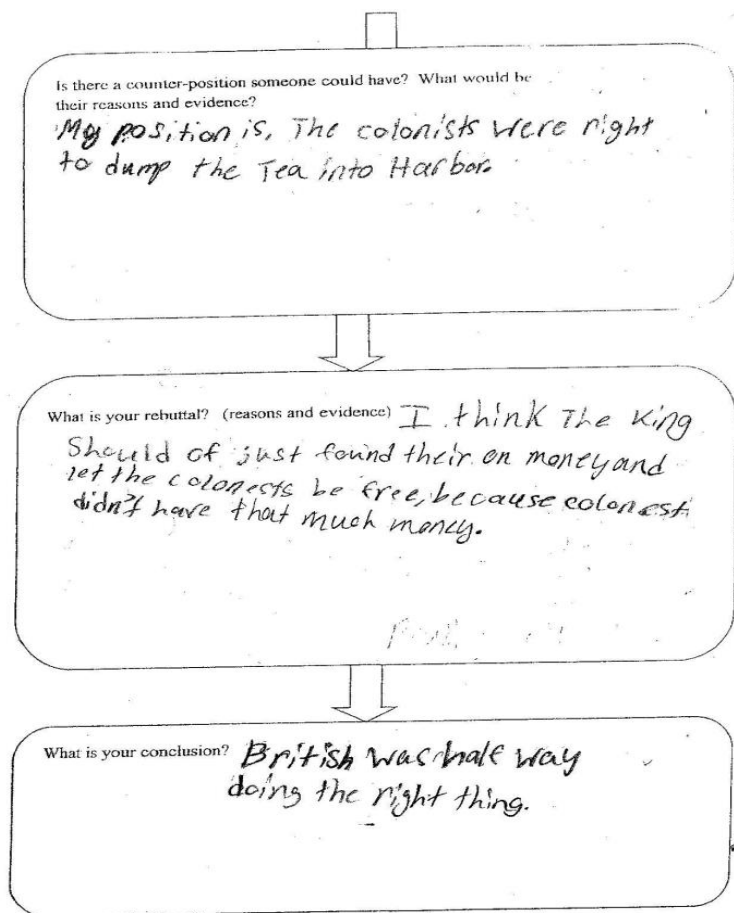 Is there a counter-position someone could have? What would be
their reasons and evidence?
My position is, The colonists were right
to dump the Tea into Harbor.
What is your rebuttal? (reasons and evidence) I think The King
Should of just found their on money and
let the colonests be free, because colonest
didn't have that much money.
What is your conclusion? British was half way
doing the right thing.